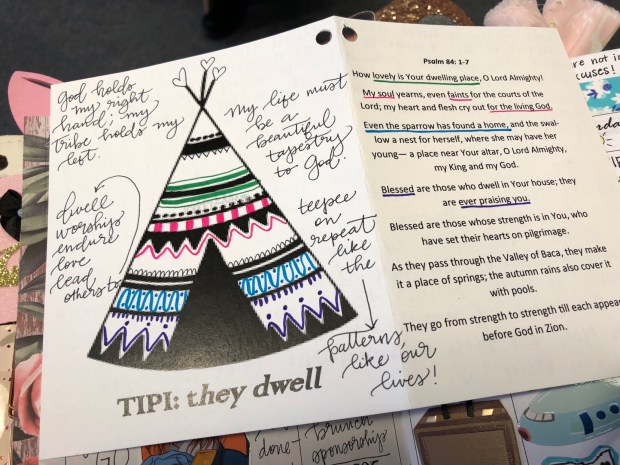 god holds
my right
hand; my
tribe holds my
left.
my life must
be a
beautiful
tapestry
to God.
dwell
worship
endure
love
lead
others to
teepee
on
repeat
like
the
patterns,
like our
lives!
TIPI: they dwell
Psalm 84: 1-7
How lovely is Your dwelling place, O Lord Almighty!
My soul yearns, even faints for the courts of the
Lord; my heart and flesh cry out for the living God.
Even the sparrow has found a home, and the swal-
low a nest for herself, where she may have her
young— a place near Your altar, O Lord Almighty,
my King and my God.
Blessed are those who dwell in Your house; they
are ever praising you.
Blessed are those whose strength is in You, who
have set their hearts on pilgrimage.
As they pass through the Valley of Baca, they make
it a place of springs; the autumn rains also cover it
with pools.
They go from strength to strength till each appears
before God in Zion.
re not in
cuses!
done-
brunch
sponsorship